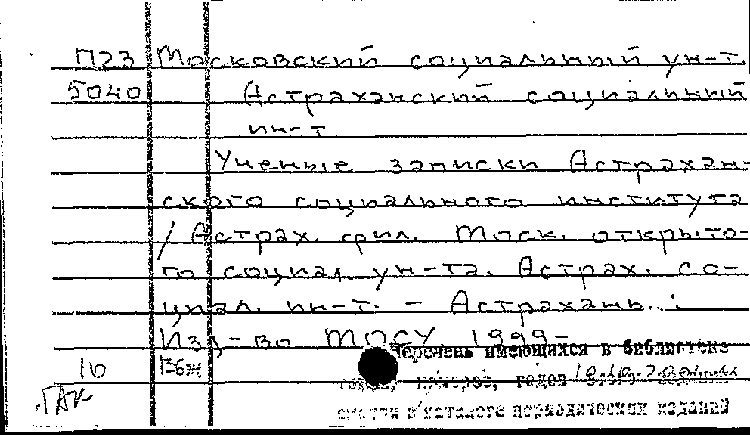 П23 Московский социальный ун-т.
5040 Астраханский социальный
ин-т
Ученые записки Астрахан-
ского социального института
/ Астрах. фил. Моск. открыто-
го социал. ун-та. Астрах. со-
циал. ин-т. - Астрахань :
Изд-во МОСУ, 1999-
Перечень имеющихся в библиотеке
16 Вбж
номеров, годов
смотри в каталоге периодических изданий